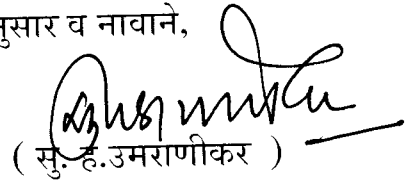 नुसार व नावाने,
( सु. ह.उमराणीकर )